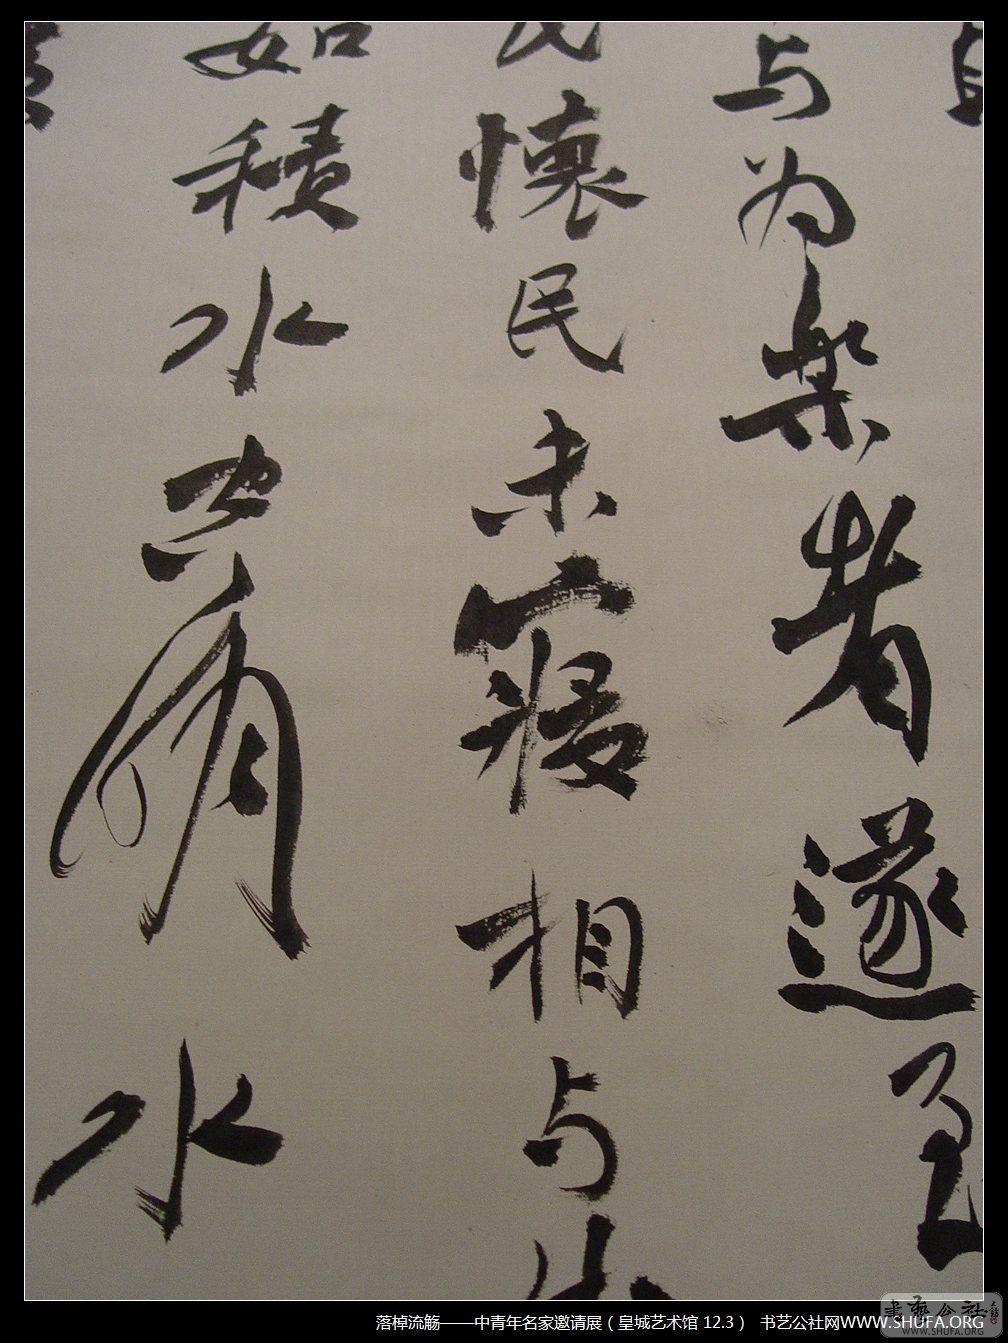 与为樂者遂至
民懷民未寢相与
如積水空明水
落棹流觞——中青年名家邀请展（皇城艺术馆 12.3） 书艺公社网WWW.SHUFA.ORG
書藝公社
WWW.SHUFA.ORG